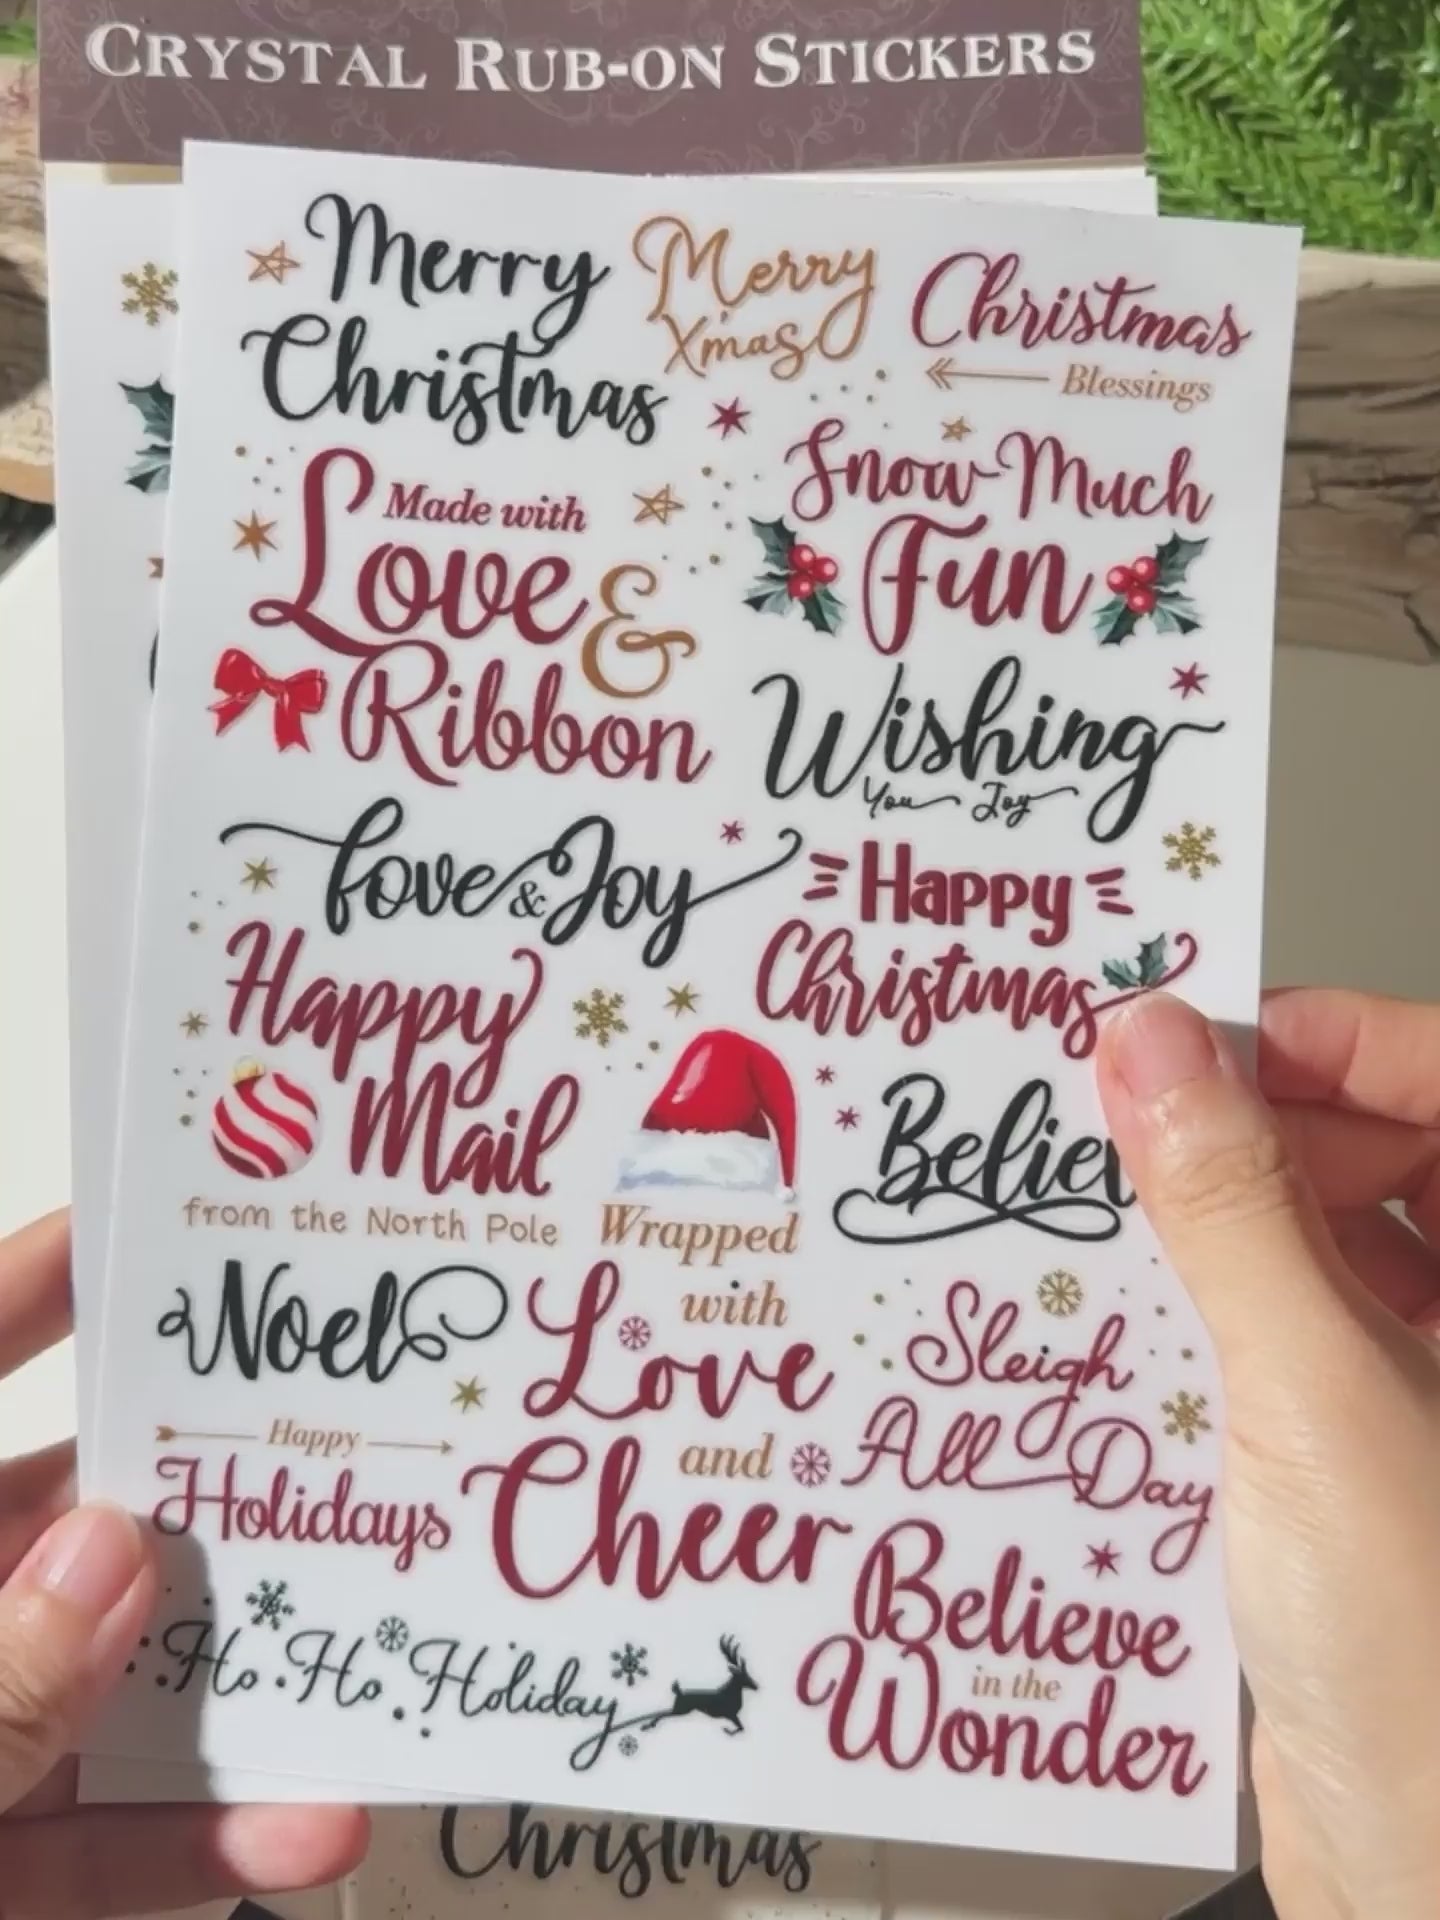 CRYSTAL RUB-ON STICKERS
Merry
Christmas
Merry
Xmas
Christmas
Blessings
Made with
Love &
Ribbon
Snow Much
Fun
Wishing
You Joy
Love & Joy
Happy
Christmas
Happy
Mail
from the North Pole
Believ
Noel
Wrapped
with
Love
and
Cheer
Sleigh
All Day
Happy
Holidays
Believe
in the
Wonder
Ho Ho Holiday
Christmas